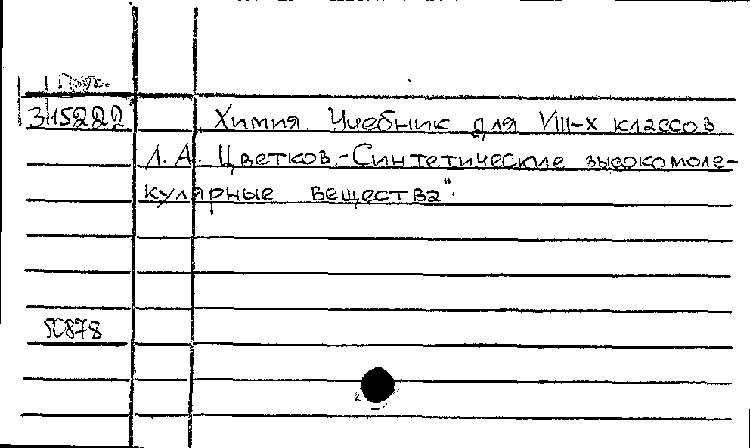 315222 Химия. Учебник для VIII-X классов
Л.А. Цветков.-Синтетические высокомоле-
кулярные вещества".
50878